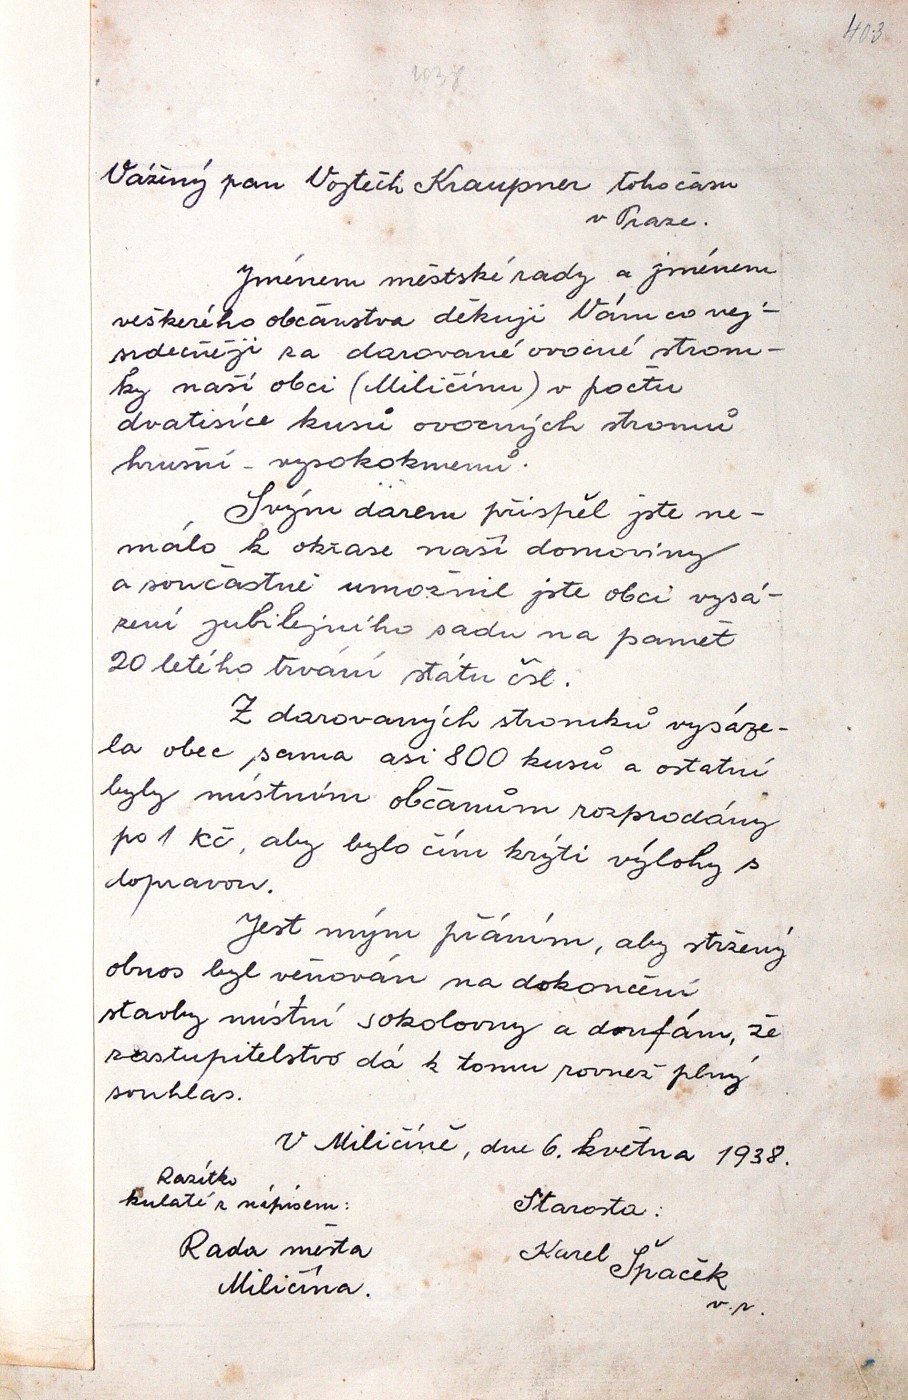 403
1038
Vážený pan Vojtěch Kraupner tohočasu
v Praze.
Jménem městské rady a jménem
veškerého občanstva děkuji Vám co nej-
srdečněji za darované ovocné strom-
ky naší obci (Miličínu) v počtu
dvatisíce kusů ovocných stromů
hrušní - vysokokmenů.
Svým darem přispěl jste ne-
málo k okrase naší domoviny
a součastně umožnil jste obci vysá-
zení jubilejního sadu na paměť
20 letého trvání státu čsl.
Z darovaných stromků vysáze-
la obec sama asi 800 kusů a ostatní
byly místním občanům rozprodány
po 1 Kč, aby bylo čím krýti výlohy s
dopravou.
Jest mým přáním, aby stržený
obnos byl věnován na dokončení
stavby místní sokolovny a doufám, že
zastupitelstvo dá k tomu rovněž plný
souhlas.
V Miličíně, dne 6. května 1938.
Razítko
kulaté z nápisem:
Starosta:
Rada města
Karel Špaček
Miličína.
v.r.